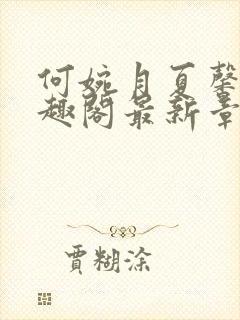 何婉月夏馨
趣阁最新章
贾糊涂